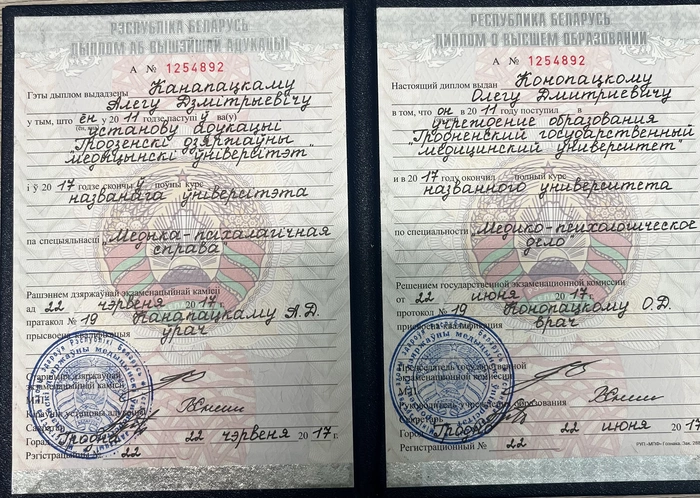 РЭСПУБЛІКА БЕЛАРУСЬ
ДЫПЛОМ АБ ВЫШЭЙШАЙ АДУКАЦЫІ
А № 1254892
Гэты дыплом выдадзены Канапацкаму
Алегу Дзмітрыевічу
у тым, што ён у 20 11 годзе паступіў ва(у)
установу адукацыі
"Гродзенскі дзяржаўны
медыцынскі ўніверсітэт"
і ў 20 17 годзе скончыў поўны курс
названага ўніверсітэта
па спецыяльнасці "Медыка-псіхалагічная
справа"
Рашэннем дзяржаўнай экзаменацыйнай камісіі
ад 22 чэрвеня 20 17 г.
пратакол № 19 Канапацкаму А.Д.
прысвоена кваліфікацыя
ўрач
Старшыня дзяржаўнай
экзаменацыйнай камісіі
М.П.
Кіраўнік установы адукацыі
Сакратар
Горад Гродна 22 чэрвеня 20 17 г.
Рэгістрацыйны № 22
РЕСПУБЛИКА БЕЛАРУСЬ
ДИПЛОМ О ВЫСШЕМ ОБРАЗОВАНИИ
А № 1254892
Настоящий диплом выдан Конопацкому
Олегу Дмитриевичу
в том, что он в 20 11 году поступил в
учреждение образования
"Гродненский государственный
медицинский университет"
и в 20 17 году окончил полный курс
названного университета
по специальности "Медико-психологическое
дело"
Решением государственной экзаменационной комиссии
от 22 июня 20 17 г.
протокол № 19 Конопацкому О.Д.
присвоена квалификация
врач
Председатель государственной
экзаменационной комиссии
М.П.
Руководитель учреждения образования
Секретарь
Город Гродно 22 июня 20 17
Регистрационный № 22